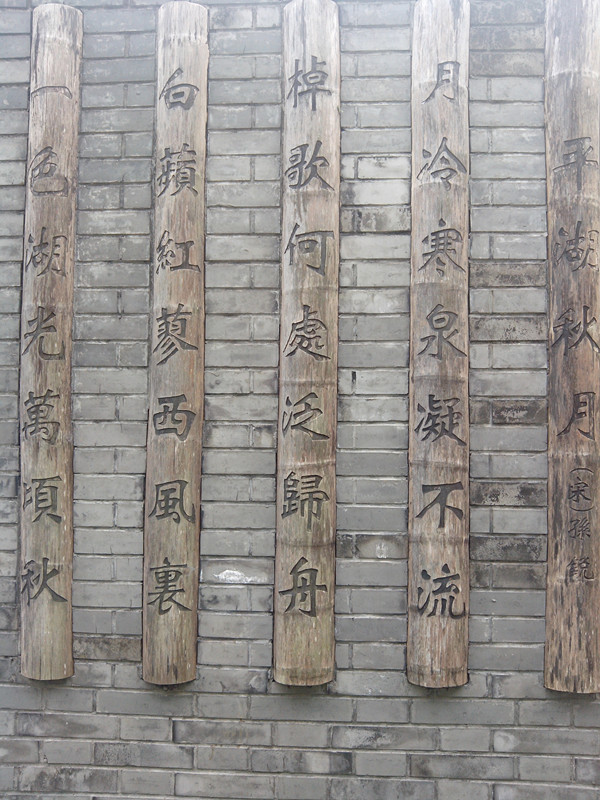 平湖秋月(宋)孫銳
月冷寒泉凝不流
棹歌何處泛歸舟
白蘋紅蓼西風裏
一色湖光萬頃秋